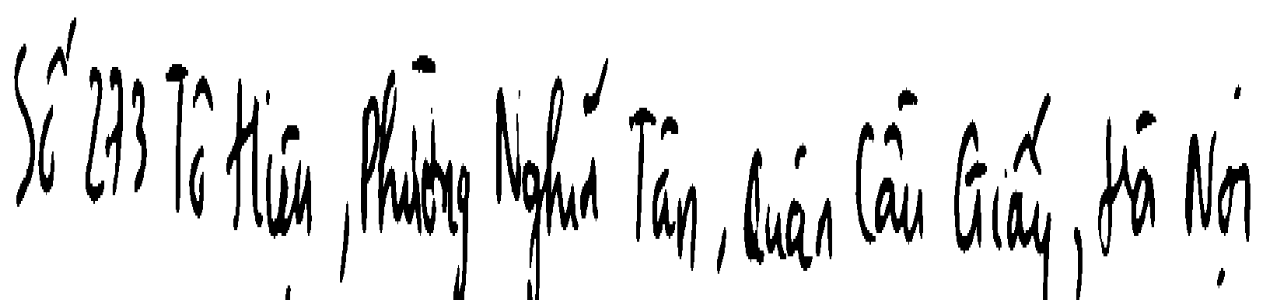 Số 273 Tô Hiệu, Phường Nghĩa Tân, Quận Cầu Giấy, Hà Nội